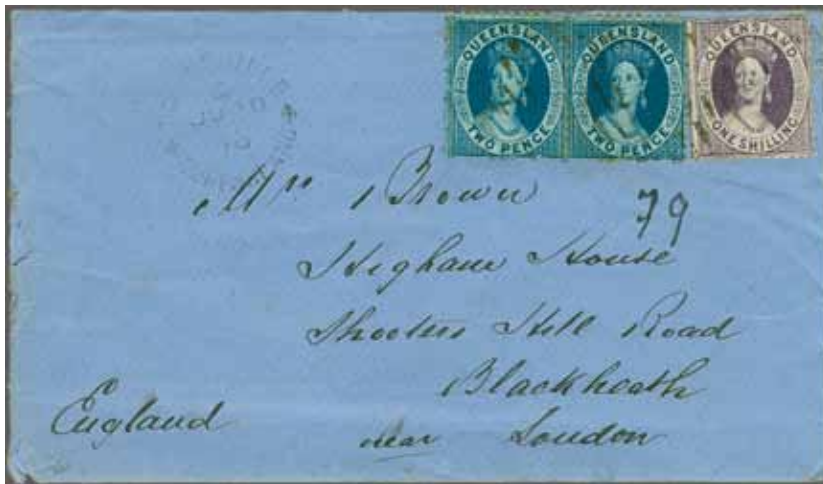 QUEENSLAND
TWO PENCE
QUEENSLAND
TWO PENCE
QUEENSLAND
ONE SHILLING
Mrs Brown
79
Higham House
Shooters Hill Road
Blackheath
England
near London